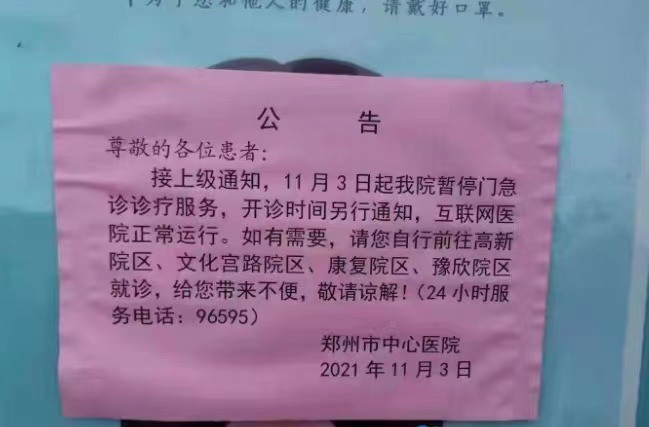 为了您和他人的健康，请戴好口罩。
公 告
尊敬的各位患者：
接上级通知，11月3日起我院暂停门急
诊诊疗服务，开诊时间另行通知，互联网医
院正常运行。如有需要，请您自行前往高新
院区、文化宫路院区、康复院区、豫欣院区
就诊，给您带来不便，敬请谅解！(24小时服
务电话：96595)
郑州市中心医院
2021年11月3日